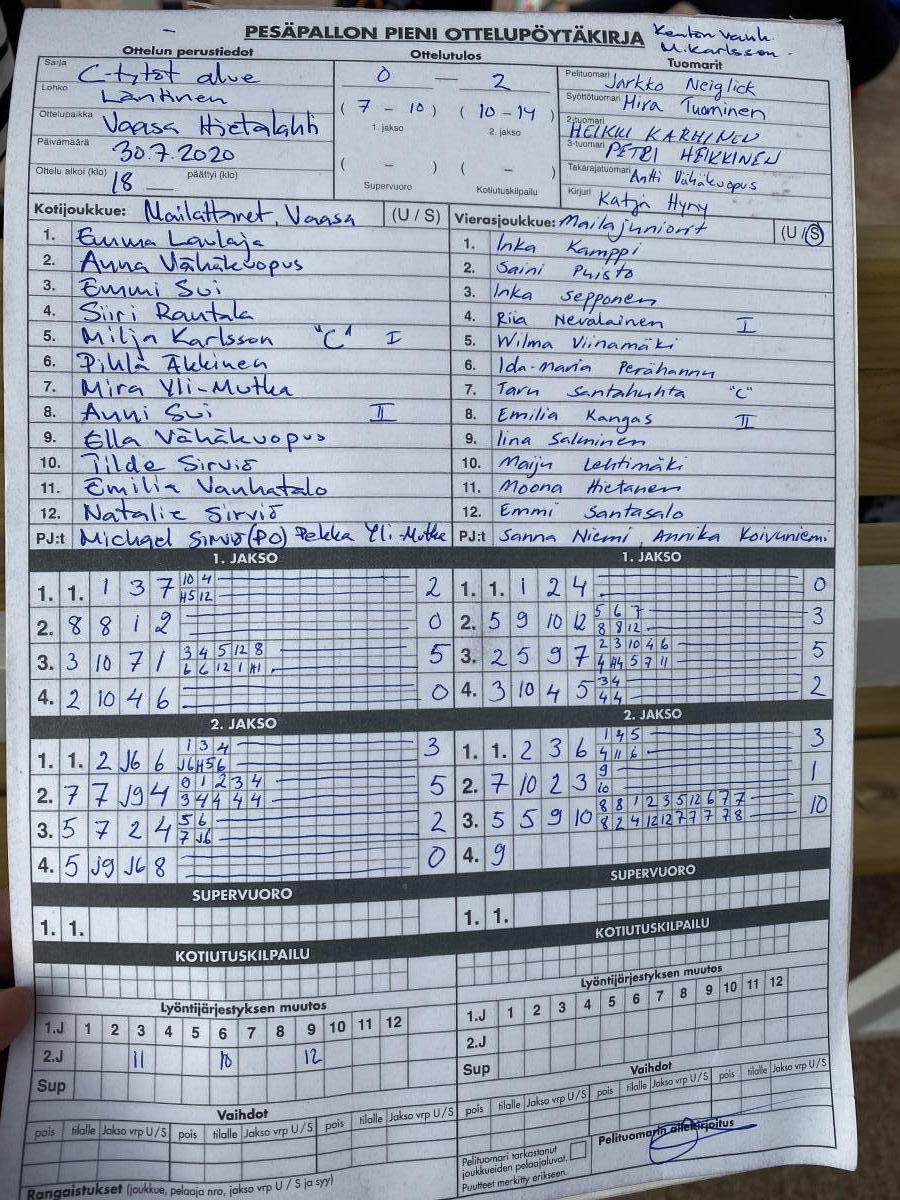 PESÄPALLON PIENI OTTELUPÖYTÄKIRJA
Kenton Vanh.
M. Karlsson
Ottelun perustiedot
Ottelutulos
Tuomarit
Sarja C-tytöt alue
Lohko Läntinen
Ottelupaikka Vaasa Hietalahti
Päivämäärä 30.7.2020
Ottelu alkoi (klo) 18 päättyi (klo)
0 — 2
( 7 - 10 ) ( 10 - 14 )
1. jakso 2. jakso
( - ) ( - )
Supervuoro Kotiutuskilpailu
Pelituomari Jarkko Neiglick
Syöttötuomari Mira Tuominen
2-tuomari HEIKKI KARHINEN
3-tuomari PETRI HEIKKINEN
Takarajatuomari Antti Vähäkuopus
Kirjuri Katja Hyny
Kotijoukkue: Mailattaret, Vaasa (U / S)
1. Emma Laulaja
2. Anna Vähäkuopus
3. Emmi Sui
4. Siiri Rautala
5. Milja Karlsson "C" I
6. Pihla Äkkinen
7. Mira Yli-Mutka
8. Anni Sui II
9. Ella Vähäkuopus
10. Tilde Sirviö
11. Emilia Vanhatalo
12. Natalie Sirviö
PJ:t Michael Sirviö (PO) Pekka Yli-Mutka
Vierasjoukkue: Mailajuniorit (U / S)
1. Inka Kamppi
2. Saini Puisto
3. Inka Sepponen
4. Riia Nevalainen I
5. Wilma Viinamäki
6. Ida-maria Perähannu
7. Taru Santahuhta "C"
8. Emilia Kangas II
9. Iina Salminen
10. Maiju Lehtimäki
11. Moona Hietanen
12. Emmi Santasalo
PJ:t Sanna Niemi, Annika Koivuniemi
1. JAKSO
1. 1. 1 3 7 10 4 2
H5 12
2. 8 8 1 2 0
3. 3 10 7 1 3 4 5 12 8 5
6 6 12 1 H1
4. 2 10 4 6 0
1. JAKSO
1. 1. 1 2 4 0
2. 5 9 10 12 5 6 7 3
8 8 12
3. 2 5 9 7 2 3 10 4 6 5
4 H4 5 7 11
4. 3 10 4 5 3 4 2
4 4
2. JAKSO
1. 1. 2 J6 6 1 3 4 3
J6 H5 6
2. 7 7 J9 4 0 1 2 3 4 5
3 4 4 4 4
3. 5 7 2 4 5 6 2
7 J6
4. 5 J9 J6 8 0
2. JAKSO
1. 1. 2 3 6 1 4 5 3
4 11 6
2. 7 10 2 3 9 1
10
3. 5 5 9 10 8 8 1 2 3 5 12 6 7 7 10
8 2 4 12 12 7 7 7 7 8
4. 9
SUPERVUORO
1. 1.
SUPERVUORO
1. 1.
KOTIUTUSKILPAILU
KOTIUTUSKILPAILU
Lyöntijärjestyksen muutos
1.J 1 2 3 4 5 6 7 8 9 10 11 12
2.J 11 10 12
Sup
Lyöntijärjestyksen muutos
1.J 1 2 3 4 5 6 7 8 9 10 11 12
2.J
Sup
Vaihdot
pois tilalle Jakso vrp U / S pois tilalle Jakso vrp U / S pois tilalle Jakso vrp U / S
Vaihdot
pois tilalle Jakso vrp U / S pois tilalle Jakso vrp U / S pois tilalle Jakso vrp U / S
Rangaistukset (joukkue, pelaaja nro, jakso vrp U / S ja syy)
Pelituomari tarkastanut
joukkueiden pelaajaluvat.
Puutteet merkitty erikseen.
Pelituomarin allekirjoitus